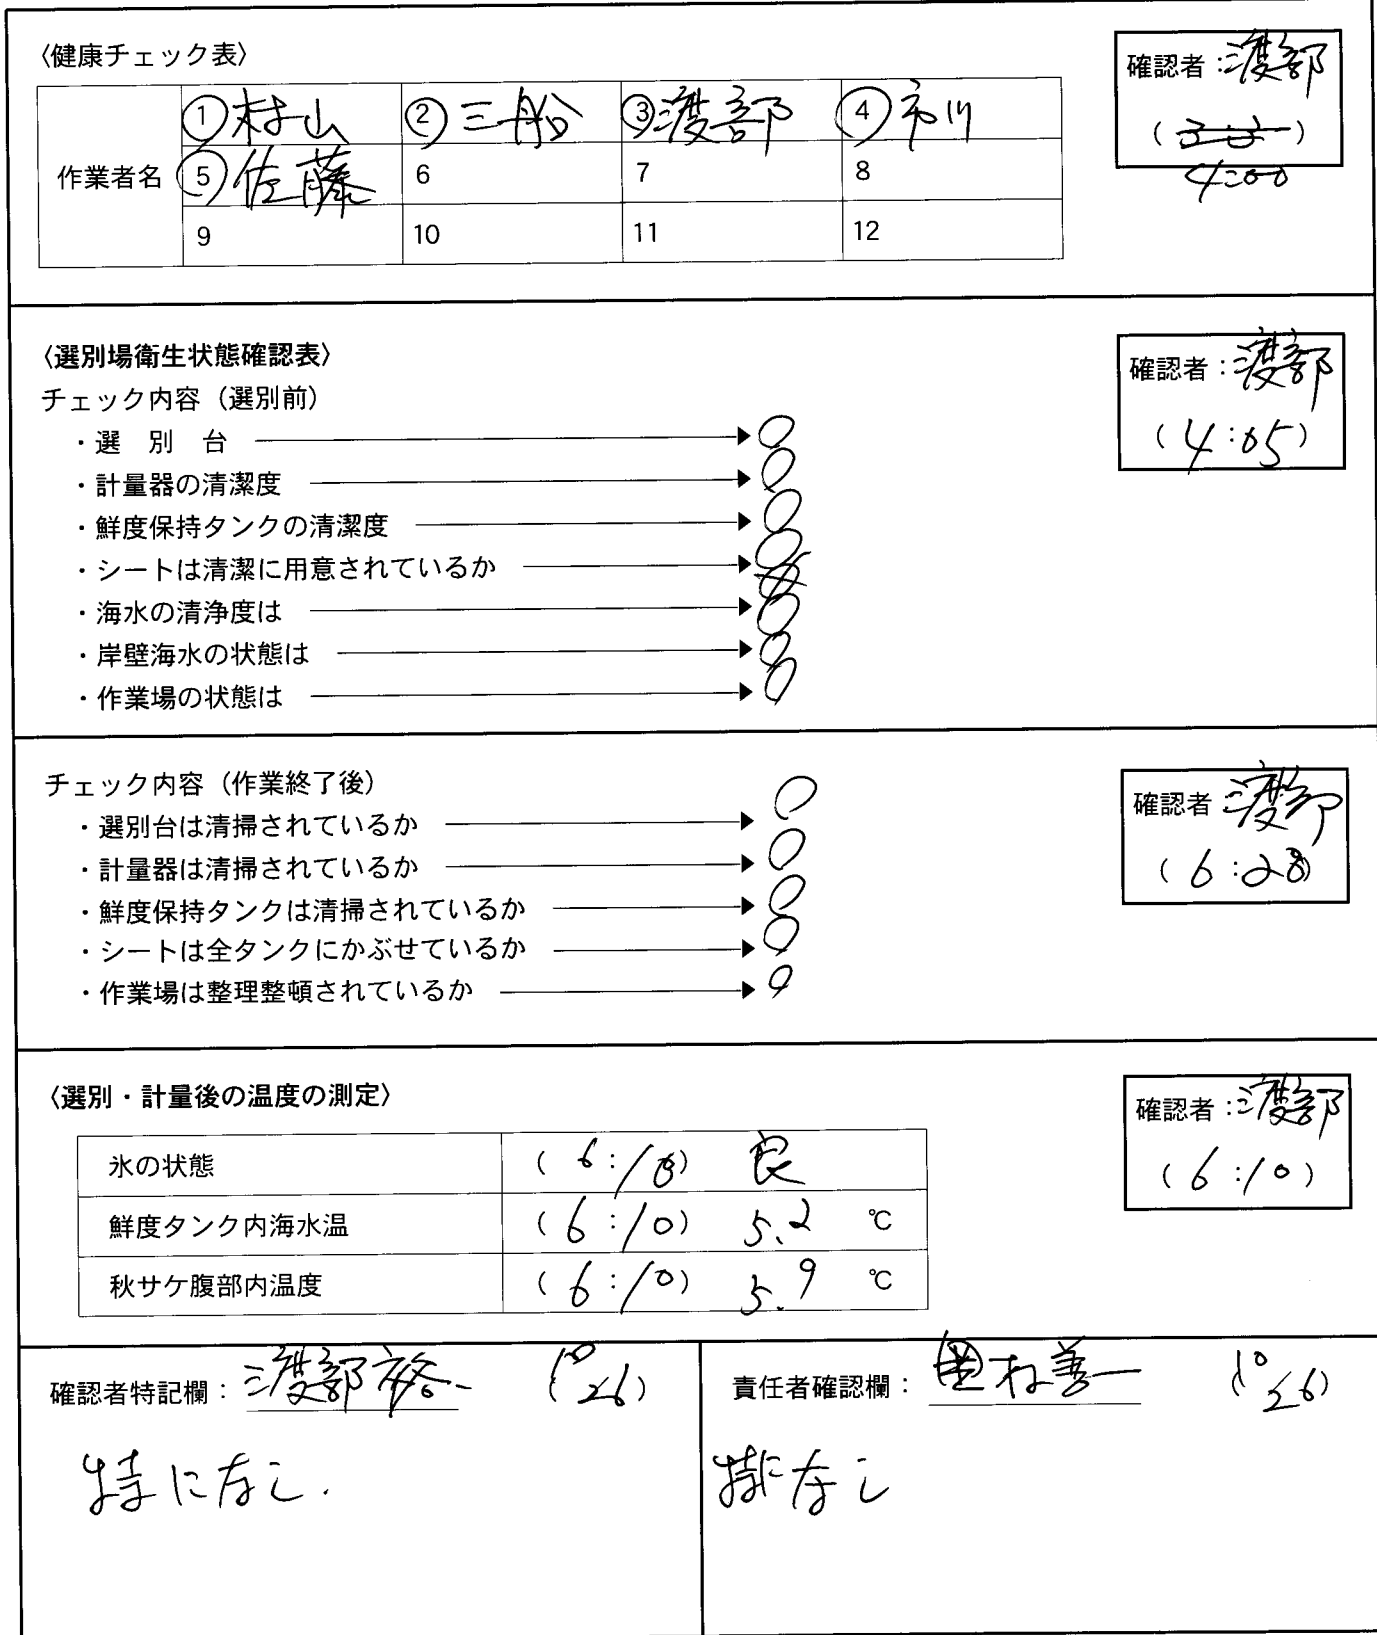 〈健康チェック表〉
確認者：渡部
作業者名
①村山 ②三船 ③渡部 ④市川
⑤佐藤 6 7 8
9 10 11 12
4:00
〈選別場衛生状態確認表〉
確認者：渡部
(4:05)
チェック内容（選別前）
・選 別 台 ○
・計量器の清潔度 ○
・鮮度保持タンクの清潔度 ○
・シートは清潔に用意されているか ○
・海水の清浄度は ○
・岸壁海水の状態は ○
・作業場の状態は ○
チェック内容（作業終了後）
確認者 渡部
(6:28)
・選別台は清掃されているか ○
・計量器は清掃されているか ○
・鮮度保持タンクは清掃されているか ○
・シートは全タンクにかぶせているか ○
・作業場は整理整頓されているか ○
〈選別・計量後の温度の測定〉
確認者：渡部
(6:10)
氷の状態 (6:10) 良
鮮度タンク内海水温 (6:10) 5.2 ℃
秋サケ腹部内温度 (6:10) 5.9 ℃
確認者特記欄：渡部裕一 (10/26)
特になし.
責任者確認欄： 善一 (10/26)
特になし